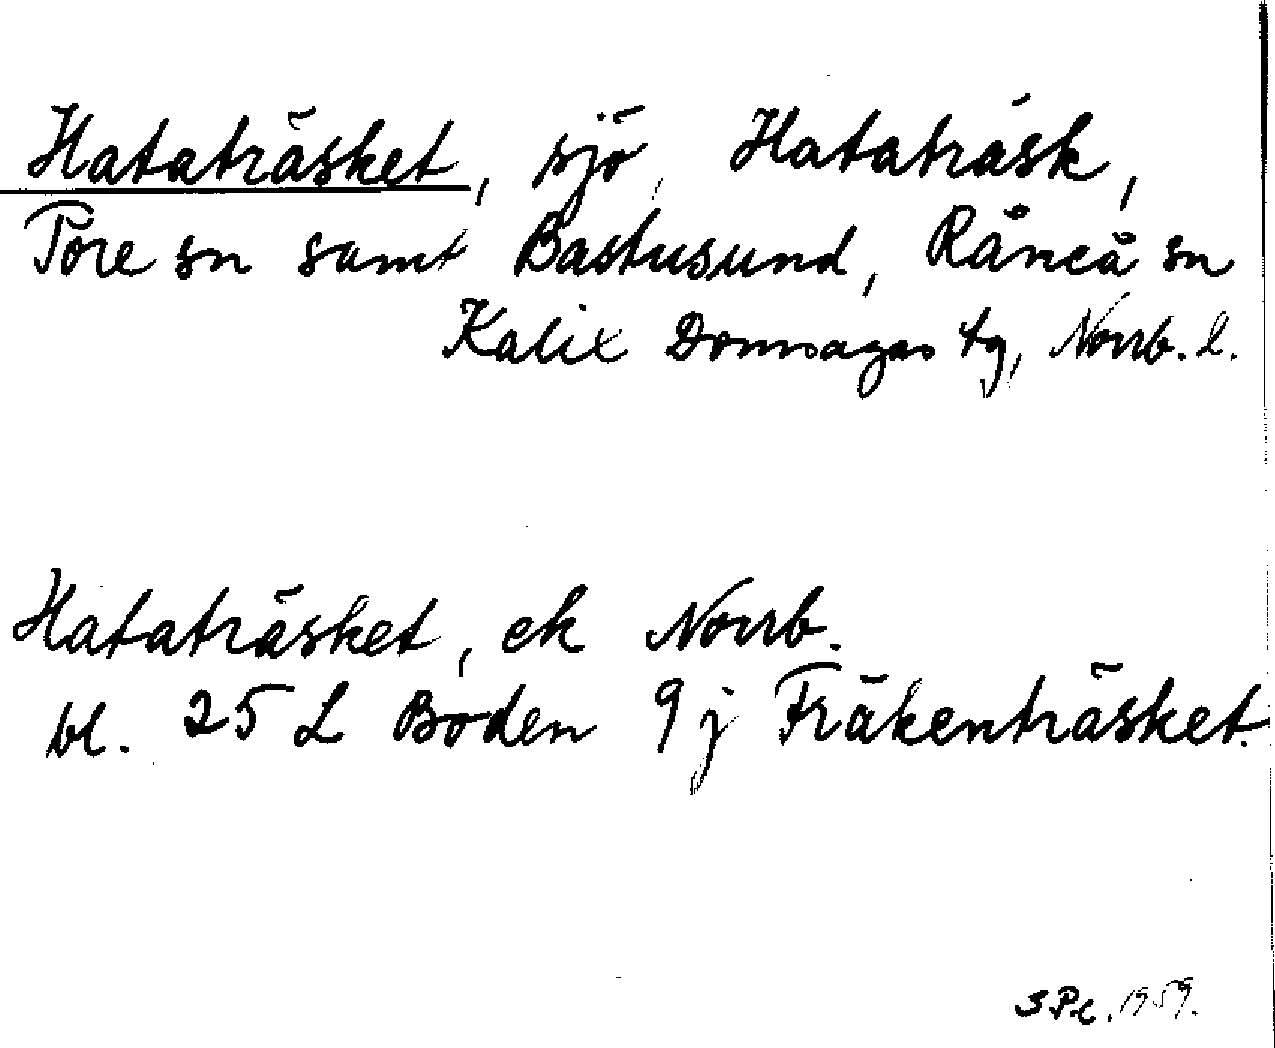 Hataträsket, sjö, Hataträsk,
Töre sn samt Bastusund, Råneå sn
Kalix Domsagas tg, Norrb. l.
Hataträsket, ek Norrb.
bl. 25 L Boden 9 j Fräkenträsket.
SPc. 1959.